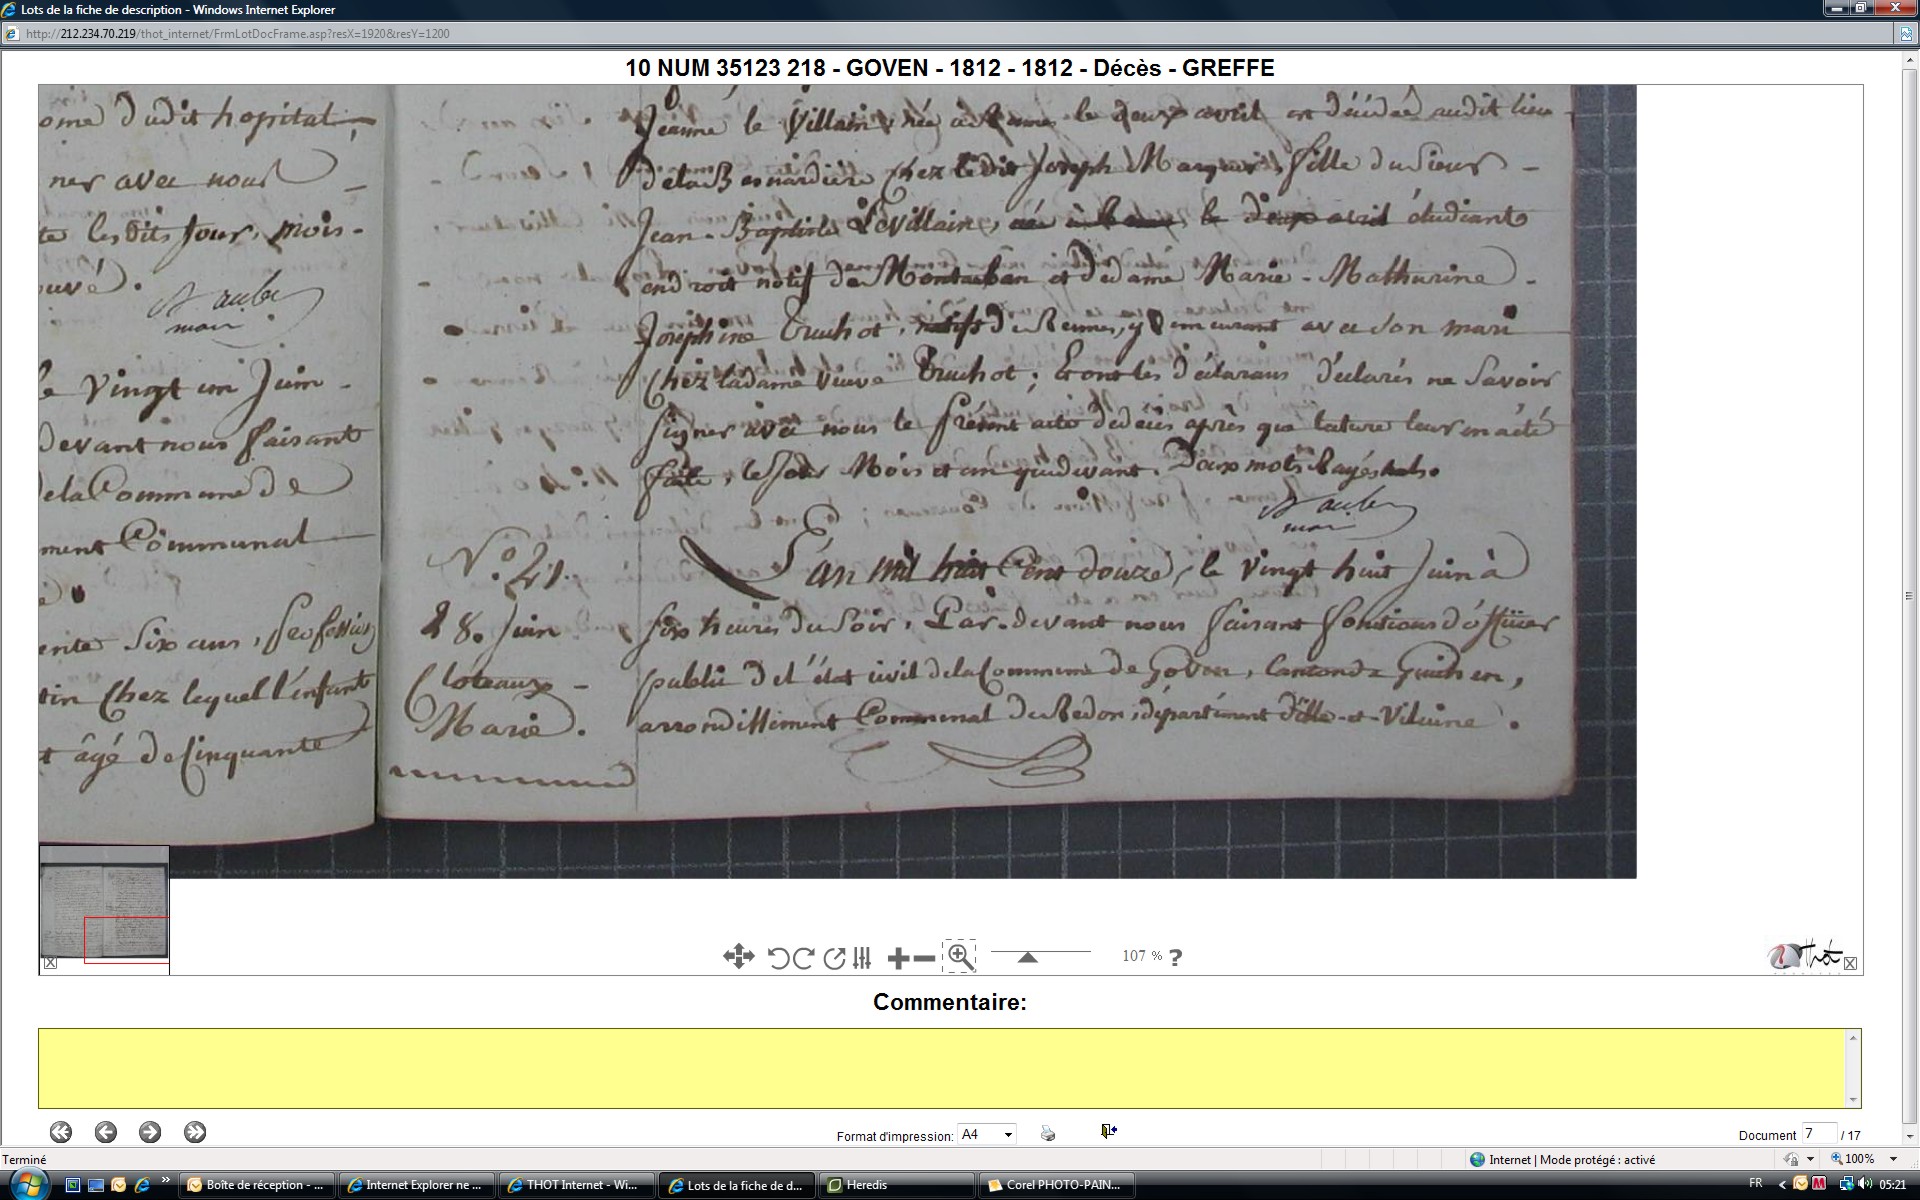 Lots de la fiche de description - Windows Internet Explorer
http://212.234.70.219/thot_internet/FrmLotDocFrame.asp?resX=1920&resY=1200
10 NUM 35123 218 - GOVEN - 1812 - 1812 - Décès - GREFFE
ome dudit hopital
ner avec nous
te lesdits jour, mois
ouvé.
Daubé
maire
le vingt un juin
devant nous faisant
de la Commune de
ment Communal
ente six ans, profession
tin chez lequel l'enfant
t âgé de Cinquante
Jeanne le Villain, née à Rennes le deux avril est décédée audit lieu
de la Besnardière chez ledit Joseph Marquer, fille du Sieur
Jean-Baptiste LeVillain, le deux avril étudiant
en droit natif de Montauban et de dame Marie-Mathurine
Joséphine Truchot, native de Rennes, y demeurant avec son mari
chez la dame veuve Truchot; Et ont les déclarans déclarés ne savoir
signer avec nous le présent acte de décès après que lecture leur en a été
faite, les jour Mois et an que devant. Deux mots Rayés nuls.
maire
N.° 21.
28. Juin
Cloteaux
Marie.
L'an mil huit Cent douze, le vingt huit Juin à
six heures du soir, Par-devant nous faisant fonctions d'officier
public de l'état civil de la Commune de Goven, Canton de Guichen,
arrondissement Communal de Redon, département d'Ille-et-Vilaine.
107 %
?
Thot
Commentaire:
Format d'impression: A4
Document 7 / 17
Terminé
Internet | Mode protégé : activé
100%
Boîte de réception - ...
Internet Explorer ne ...
THOT Internet - Wi...
Lots de la fiche de d...
Heredis
Corel PHOTO-PAIN...
FR
05:21